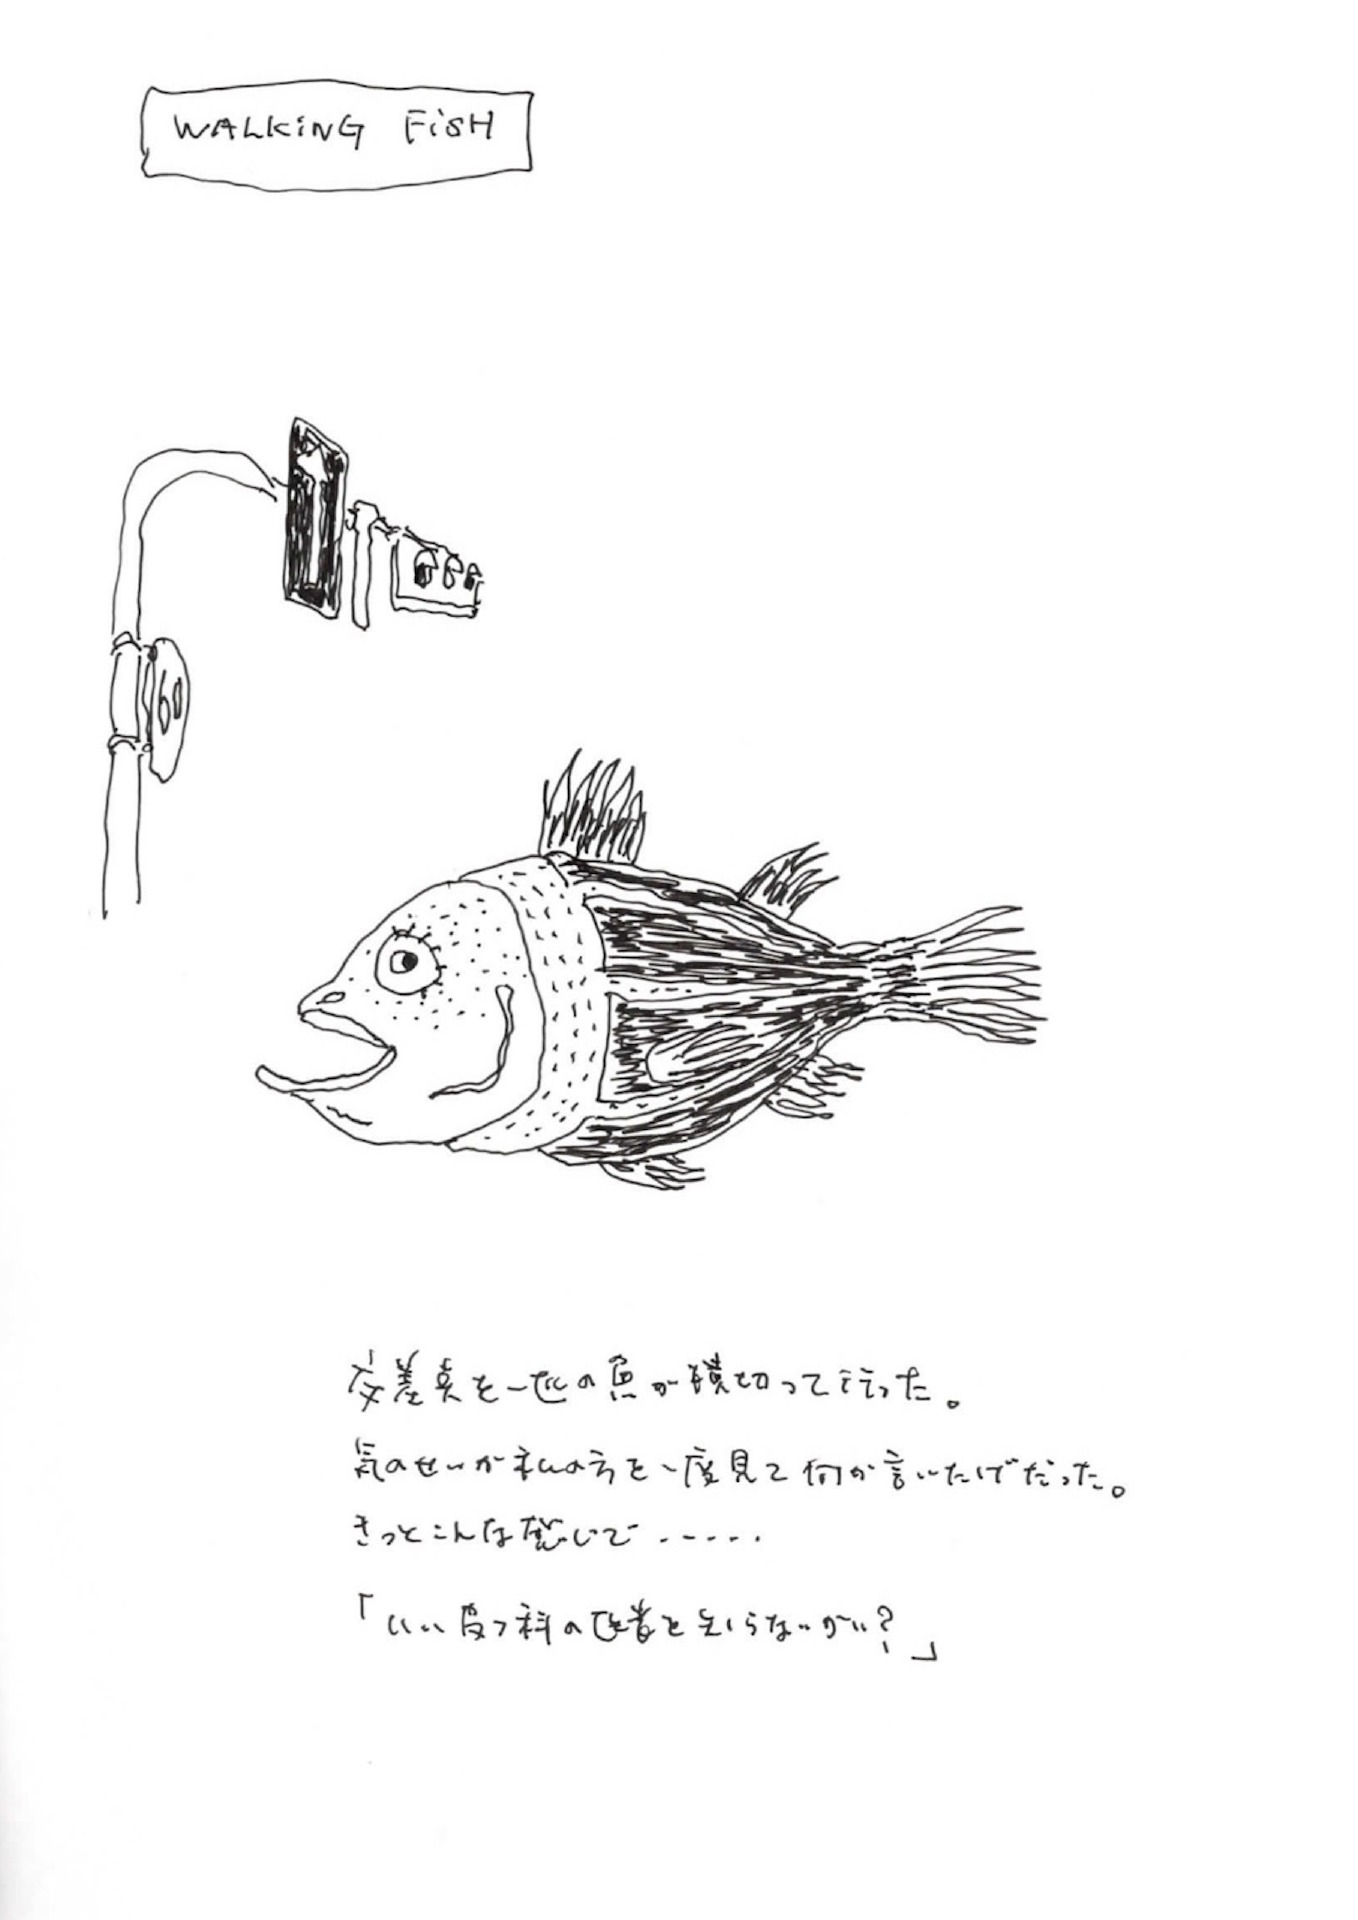 WALKiNG FiSH
60
交差点を一匹の魚が横切って行った。
気のせいか私の方を一度見て何か言いたげだった。
きっとこんな感じで.....
「いい皮フ科の医者を知らないかい?」